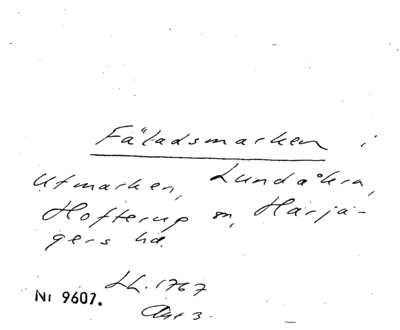 Fäladsmarken i
Utmarken, Lundåkra,
Hofterup sn, Harjä-
gers hd.
Lh. 1767
Nr 9607.
Akt 3.